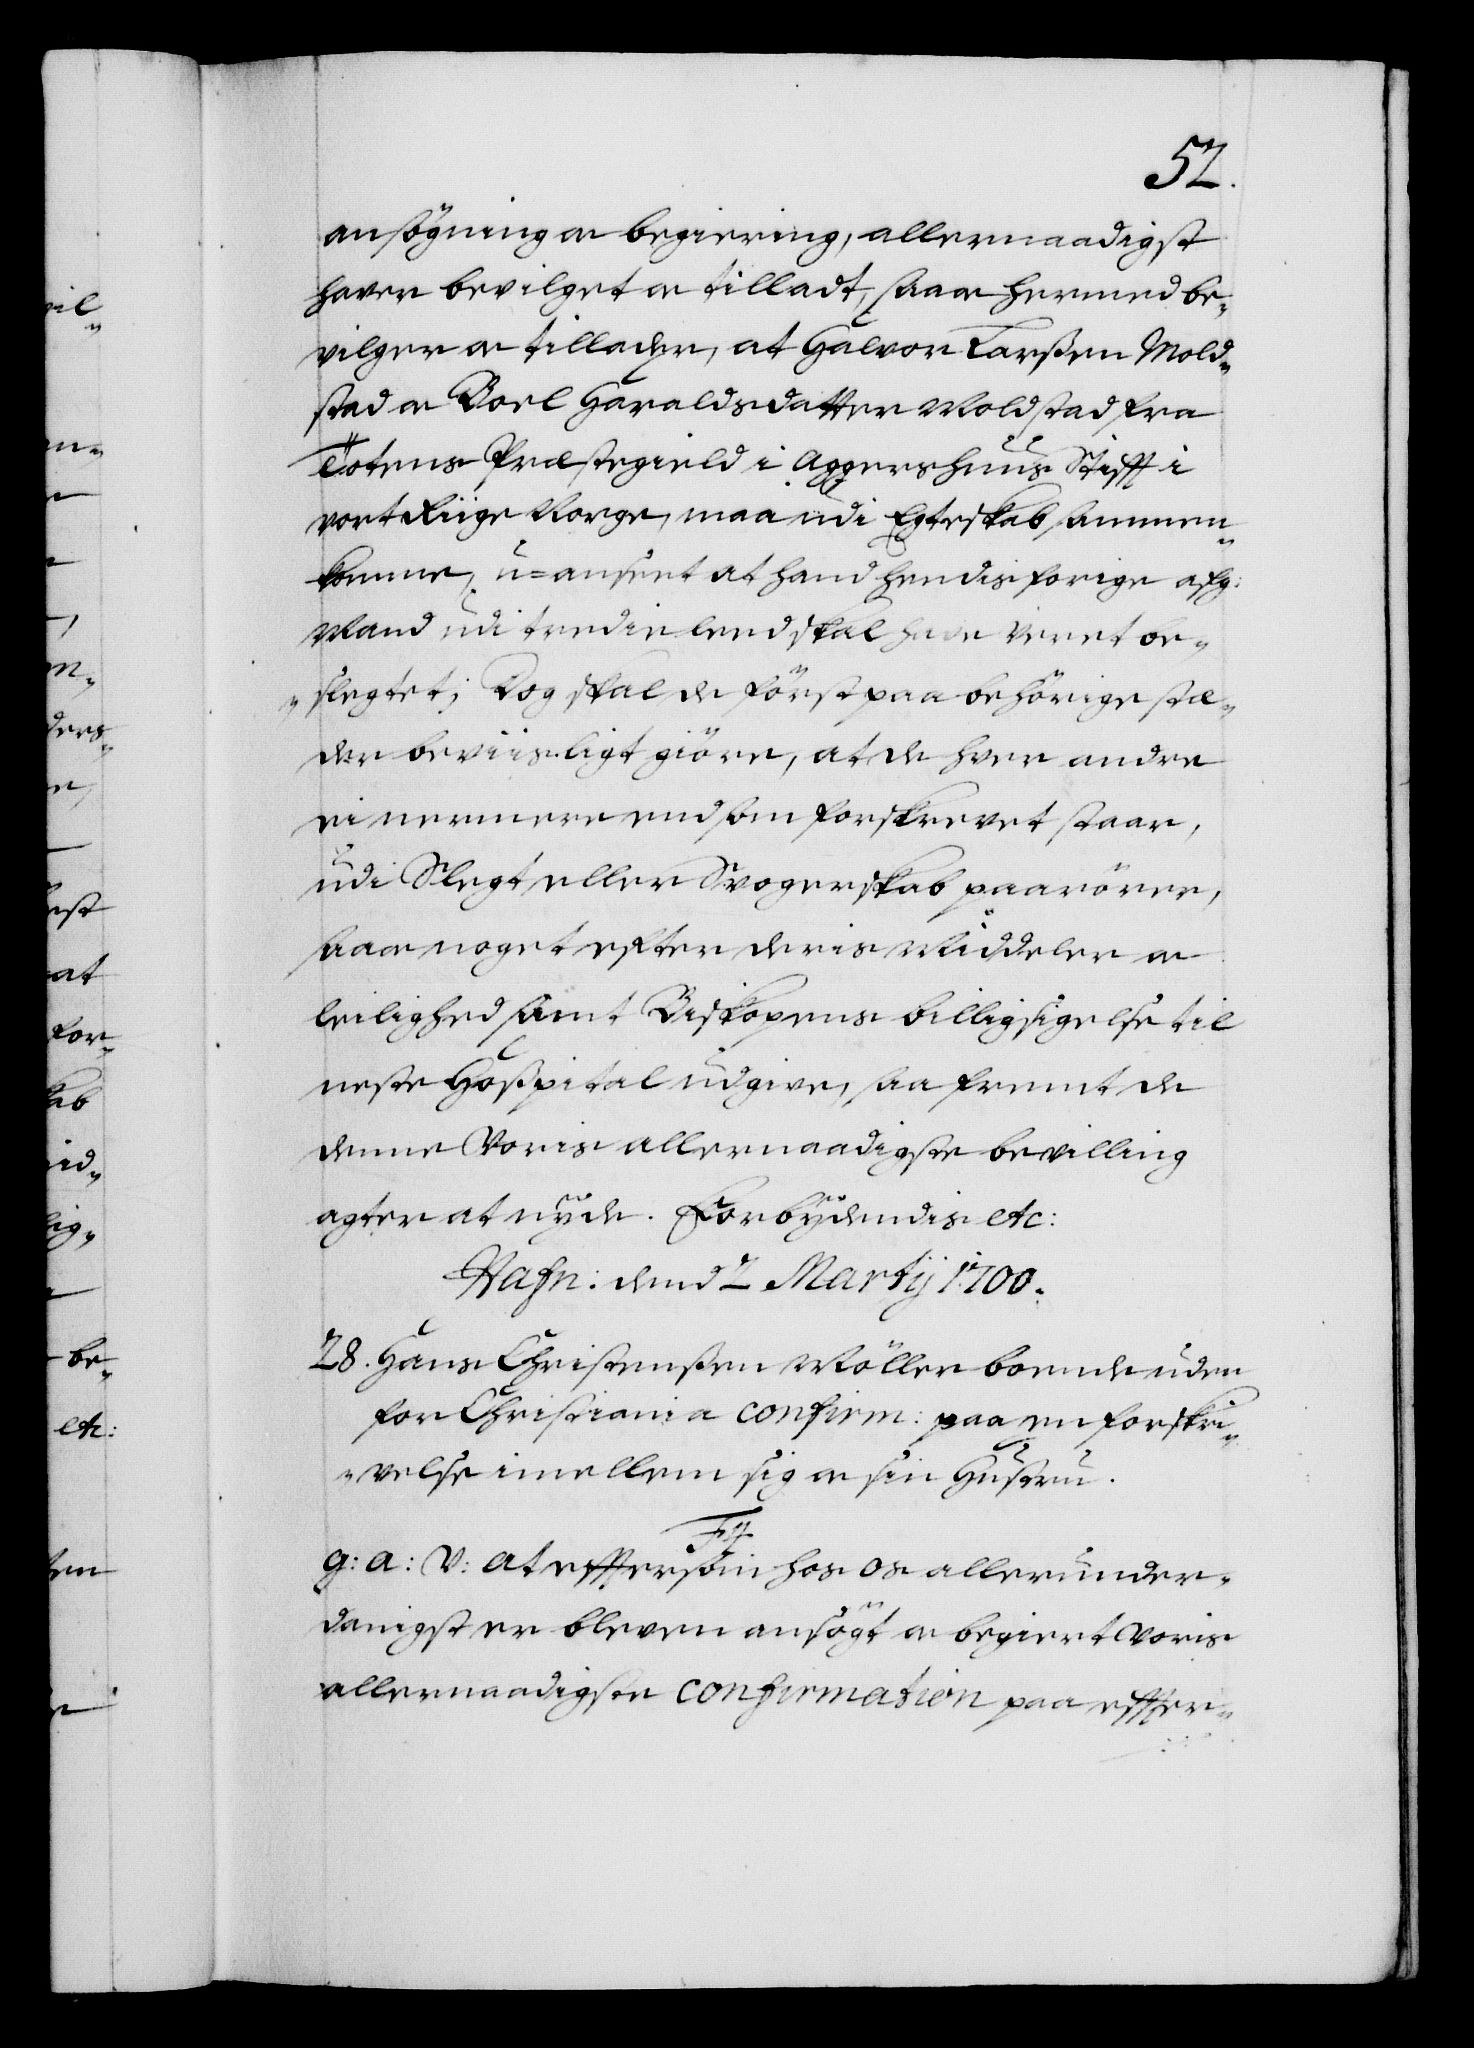 52.
ansögning oc begiering, allernaadigst
haver bevilget oc tilladt, saa oc hermed be-
vilger oc tillader, at Halvor Larßen Mold-
stad oc Boel Haraldsdatter Molstad fra
Totens Præstegield i Aggershuus Stifft i
vort Riige Norge, maa udi Egteskab sammen-
komme, u=anseet at hand hendis forige afg:
Mand udi tredie leed skal have veret be-
slegtet; Dog skal de först paa behörige stæ-
der beviisligt giöre, at de hver andre
ei nermere end som forskrevet staar,
udi Slegt eller Svogerskab paarörer,
saa oc noget efter deris Middeler oc
leilighed samt Biskopens billigsigelse til
neste Hoßpital udgive, saa fremt de
denne Voris allernaadigste bevilling
agter at nyde. Forbydendis etc:
Hafn: dend 2 Martij 1700.
28. Hans Christenßen Möller boende uden
for Christiania confirm: paa en forskri-
velse imellem sig oc sin Hustru.
F4
G: A: V: at effterson hos os allerunder-
danigst er bleven ansögt oc begiert Voris
allernaadigste confirmation paa effter-